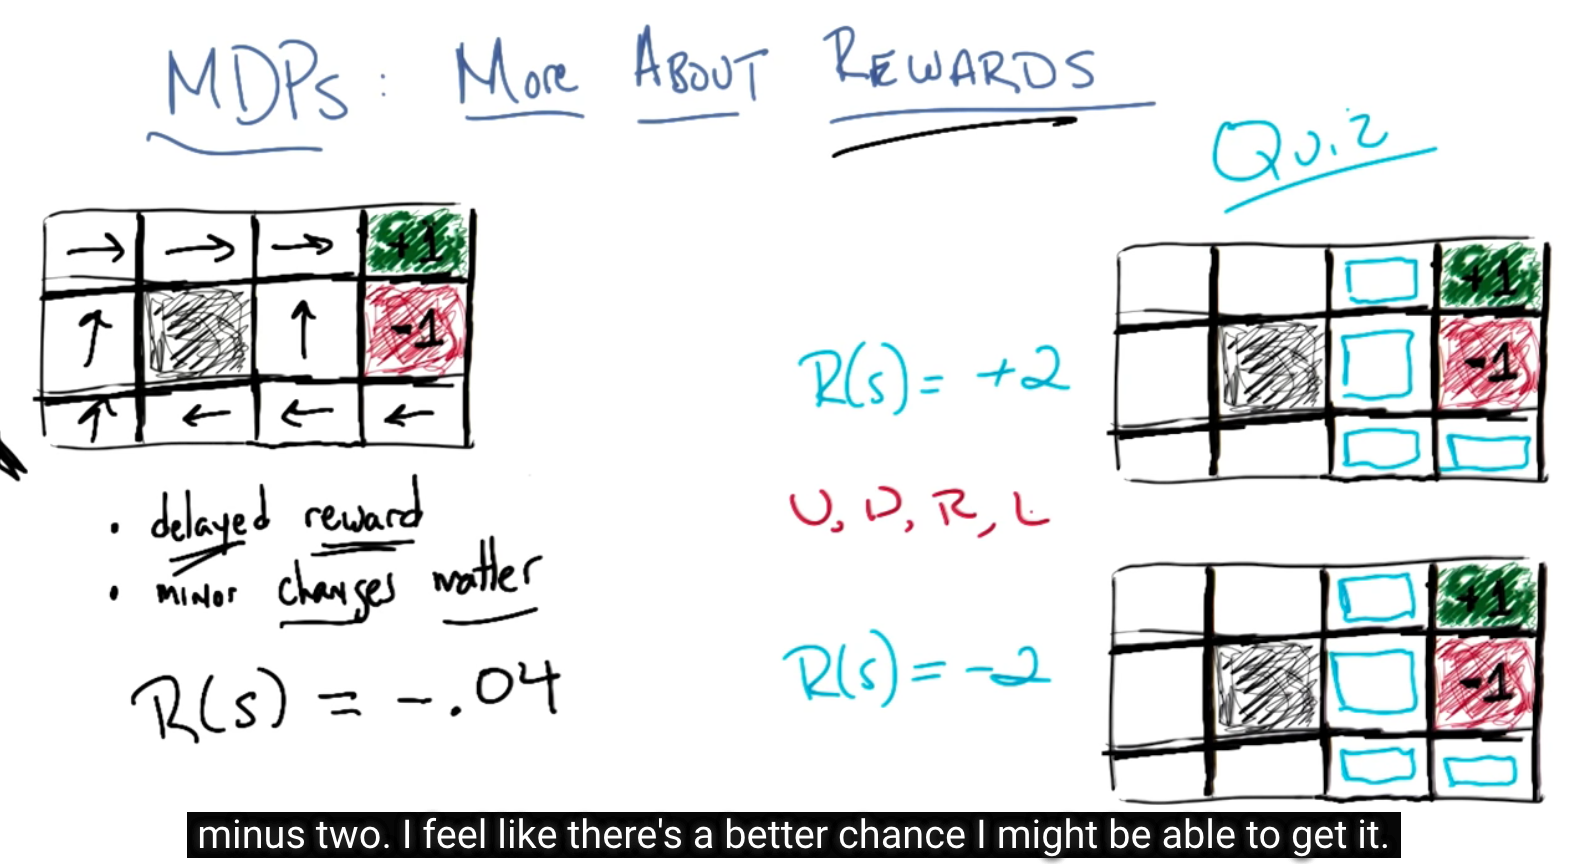 MDPs: More About Rewards
Quiz
→ → → +1
↑ ↑ -1
↑ ← ← ←
• delayed reward
• minor changes matter
R(s) = -.04
R(s) = +2
U, D, R, L
R(s) = -2
+1
-1
+1
-1
minus two. I feel like there's a better chance I might be able to get it.